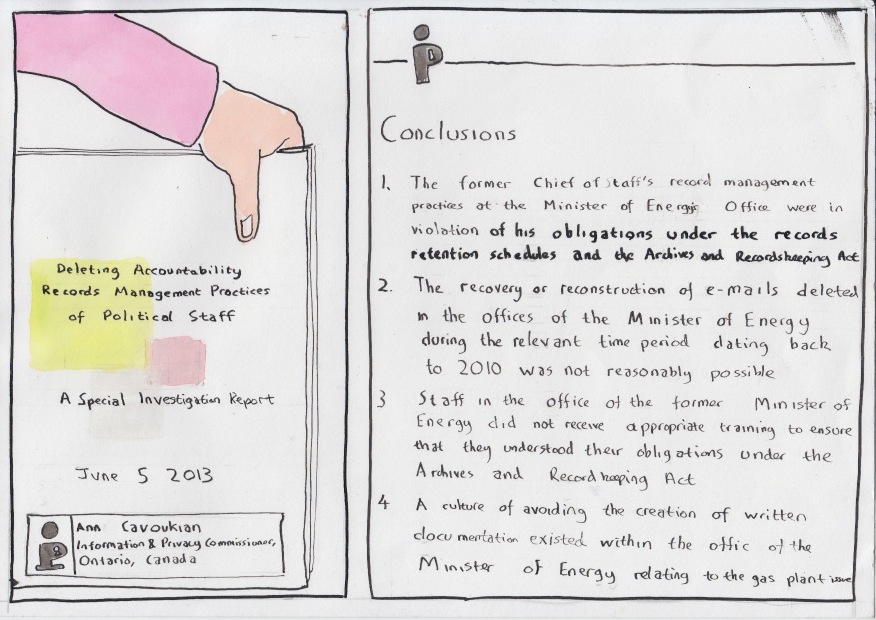 Deleting Accountability
Records Management Practices
of Political Staff
A Special Investigation Report
June 5 2013
Ann Cavoukian
Information & Privacy Commissioner,
Ontario, Canada
Conclusions
1. The former Chief of Staff's record management
practices at the Minister of Energy's Office were in
violation of his obligations under the records
retention schedules and the Archives and Recordskeeping Act
2. The recovery or reconstruction of e-mails deleted
in the offices of the Minister of Energy
during the relevant time period dating back
to 2010 was not reasonably possible
3 Staff in the office of the former Minister of
Energy did not receive appropriate training to ensure
that they understood their obligations under the
Archives and Recordkeeping Act
4 A culture of avoiding the creation of written
documentation existed within the offic of the
Minister of Energy relating to the gas plant issue